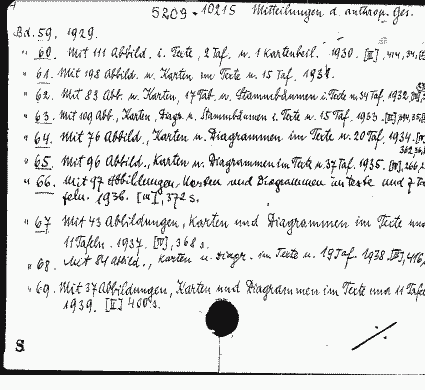 5209-10215 Mitteilungen d. anthrop. Ges.
Bd. 59. 1929.
" 60. Mit 111 Abbild. i. Texte, 2 Taf. u. 1 Kartenbeil. 1930. [III], 414, 34,
" 61. Mit 198 Abbild. u. Karten im Texte u. 15 Taf. 1931.
" 62. Mit 83 Abb. u. Karten, 17 Tab. u. Stammbäumen i. Texte u. 34 Taf. 1932
" 63. Mit 109 Abb., Karten, Diagr. u. Stammbäumen i. Texte u. 15 Taf. 1933.
" 64. Mit 76 Abbild., Karten u. Diagrammen im Texte u. 20 Taf. 1934.
" 65. Mit 96 Abbild., Karten u. Diagrammen im Texte u. 37 Taf. 1935.
" 66. Mit 97 Abbildungen, Karten und Diagrammen im Texte und 7 Ta
feln. 1936. [III], 372 S.
" 67. Mit 43 Abbildungen, Karten und Diagrammen im Texte und
11 Tafeln. 1937. [IV], 368 S.
" 68. Mit 84 Abbild., Karten u. Diagr. im Texte u. 19 Taf. 1938. [IV], 416
" 69. Mit 37 Abbildungen, Karten und Diagrammen im Texte und 11 Tafe
1939. [II] 400 S.
S